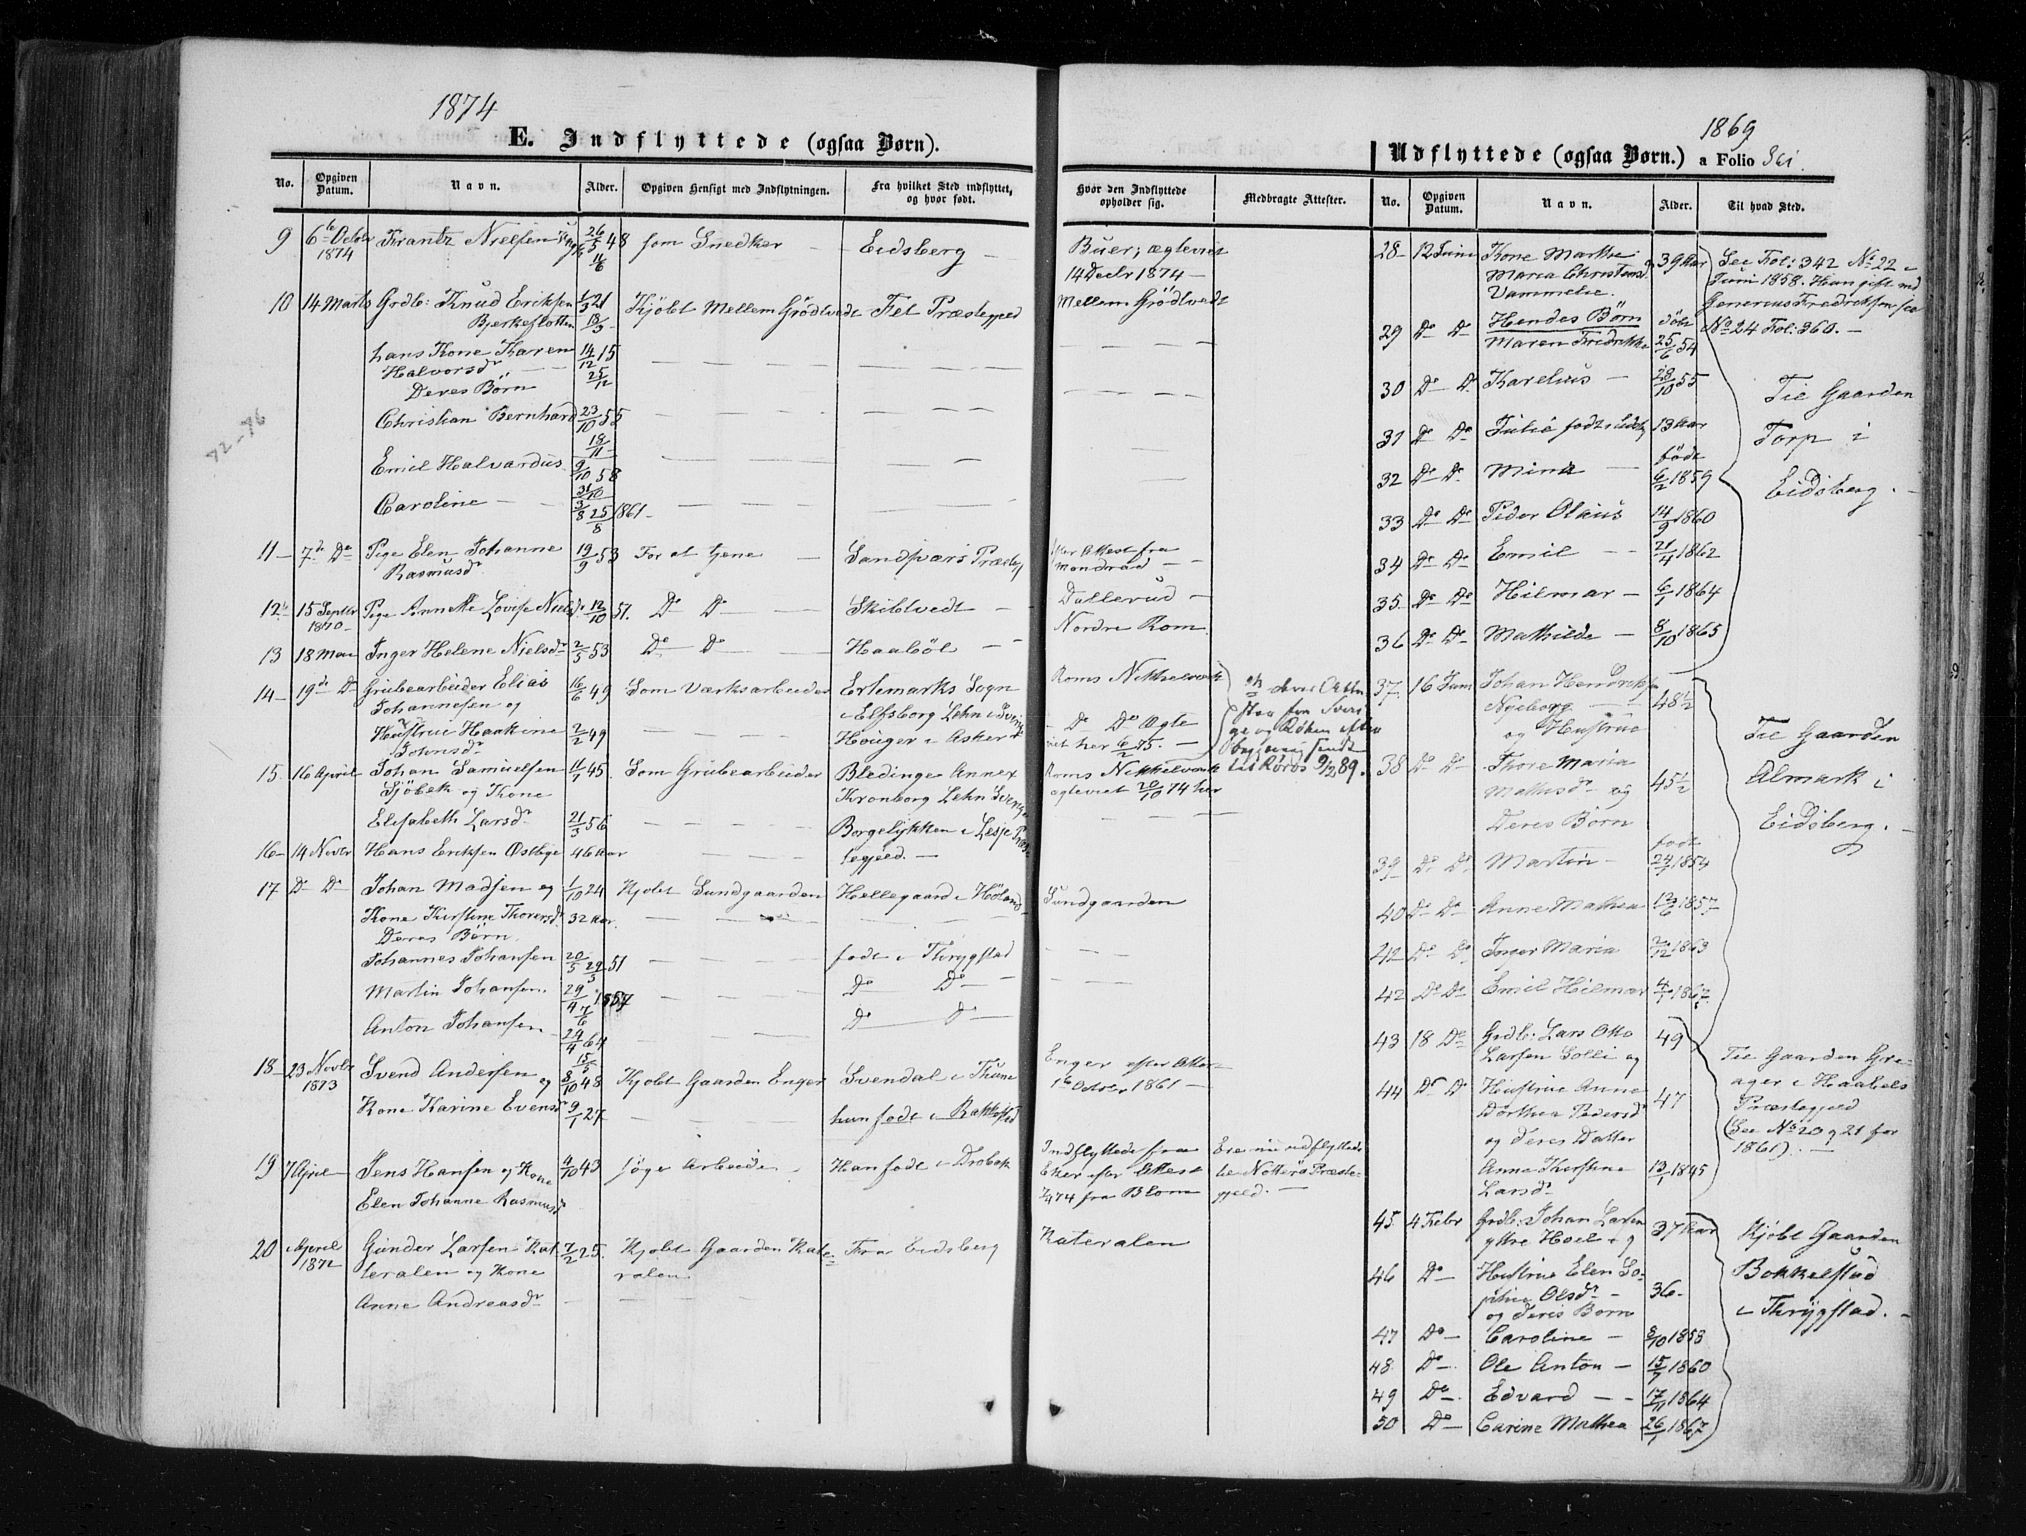 1874
E. Indflyttede (ogsaa Børn).
No.
Opgiven Datum.
Navn.
Alder.
Opgiven Hensigt med Indflytningen.
Fra hvilket Sted indflyttet, og hvor født.
Hvor den Indflyttede opholder sig.
Medbragte Attester.
9 6te Octobr Frantz Nielsen 26/5 48 som Snedker — Eidsberg — Buer, ægteviet
1874 14 Decbr 1874 —
10 14 Marts Grdb: Knud Eriksen 1/3 21 Kjøbt Mellem Grödtvedt Fet Præstegjeld Mellem Grödtvedt
Bjerkeslotten 18/3
hans Kone Karen 14/12 15
Halvorsdr 25/12
Deres Børn
Christian Bernhard 23/10 55
18/11
Emil Halvardus 9/10 58
31/10
Caroline — 3/8 25/8 1861
72-76
11 — 7de Do Pige Elen Johanne 19/9 53 For at tjene — Sandsvärs Præstegj efter Attest fra
Rasmusdr
12te 15 Septbr Pige Annette Lovise Nielsdr 12/10 51. Do Do Skibtvedt — Dullerud —
1870 — Nordre Rom
13 18 Mai Inger Helene Nielsdr 2/5 53 Do Do Haaböl —
14 — 19de Do Grubearbeider Elias 16/6 49 Som Værksarbeider Ertemarks Sogn Roms Nikkelværk
Johannesen og i Elfsborg Lehn i Sverige
Hustrue Haakine 2/2 49 Houger i Asker — Do Do Ægte
Bohmsdr viet her 6/2 75. —
til Röros 9/12 89.
15. 16 April Johan Samuelsen 11/7 45. Som Grubearbeider Bledinge Annex Roms Nikkelværk
Sjöbek og Kone Kronborg Lehn Sverige ægteviet 20/10 74 her
Elisabeth Larsdr 21/3 56 Borgelykken i Lesje Præ-
16 — 14 Novbr Hans Eriksen Östbye 46 Aar stegjeld. —
17 Do Do Johan Madsen og 1/10 24 Kjøbt Sundgaarden Hellegaard i Höland Sundgaarden
Kone Kirstine Thoresdr 32 Aar
Deres Børn.
Johannes Johansen 20/5 29/5 51 født i Thrygstad
Martin Johansen. 29/4 7/6 1857 Do Do —
Anton Johansen — 24/4 64 Do Do —
15/5
18 — 23 Novbr Svend Andersen og 8/10 48 Kjøbt Gaarden Enger Svendal i Thune Enger efter Attest
1873 1ste October 1861 —
Kone Karine Evensdr 9/1 27 hun født i Rakkestad
19 7 April — Jens Hansen og Kone 4/10 43 søge Arbeide. Han født i Drøbak Indflyttede fra Ere nu udflyttede
Elen Johanne Rasmusdr Eker efter Attest til Nøtterø Præste-
7/4 74 fra Blom gjeld. —
20 April Gunder Larsen Kat- 7/2 25. Kjøbt Gaarden Kate- Fra Eidsberg Kateralen
1872 teralen og Kone ralen
Anne Andreasdr
1869
Udflyttede (ogsaa Børn.) a Folio 361.
No.
Opgiven Datum.
Navn.
Alder.
Til hvad Sted.
28 — 12 Juni Kone Marthe 39 Aar See Fol: 342 No 22 i
Maria Christensdr Juni 1858. Hun gift med
Vammelie. Generius Fredriksen see
29 Do Do Hendes Børn født No 24 Fol: 360. —
Maren Fredrikke 25/6 54
30 Do Do Karelius — 28/10 55 Til Gaarden
31 Do Do Julie født i Eidsb. 13 Aar Torp i
født
32 Do Do. Mina — 6/2 1859 Eidsberg. —
33 Do Do Peder Olaus 14/9 1860
34 Do Do Emil — 21/4 1862
35. Do Do Hilmar — 6/1 1864
36 Do Do Mathilde — 8/10 1865
37. 16 Juni Johan Hendriksen 48 1/2
Nyeborg
og Hustrue Til Gaarden
38 Do Do Thore Maria 45 1/2 Almark i
Mathisdr og
Deres Børn Eidsberg. —
født
39 Do Do Martin — 24/7 1854
40 Do Do Anne Mathea 12/6 1857
42 Do Do Inger Maria 2/12 1863
42 Do Do Emil Hilmar 4/1 1867
43 18 Do Grdb: Lars Otto 49
Larsen Solli og Til Gaarden Gre-
44 Do Do Hustrue Anne 47 ager i Haabøls
Dorthea Pedersdr Præstegjeld
og deres Datter (See No 20 og 21 for
Anne Kirstine 13/1 1845 1861). —
Larsdr
45. 4 Febr Grdb: Johan Larsen 37 Aar Kjøbt Gaarden
yttre Hoel og
46 Do — Hustrue Elen So- 36 — Bokkelstad
phie Olsdr — i Thrygstad. —
og deres Børn
47 Do — Caroline — 8/10 1858
48. Do —. Ole Anton — 15/7 1860
49 Do —. Edvard — 17/11 1864
50 Do — Carine Mathea 26/1 1867